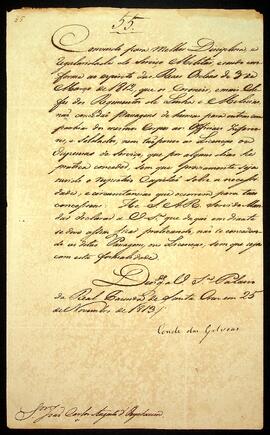 55.
Convindo para melhor Disciplina, e
regularidade do Serviço Militar, e sendo con-
forme ao espirito das Reaes Ordens de 3 de
Março de 1812, que os Coroneis, e mais Che-
fes dos Regimentos de Linha e Milicias,
não concedão Passagens de humas para outras com-
panhias do mesmo Corpo aos Officiaes Inferio-
res, e Soldados, nem tão pouco as Licenças ou
dispensas de Serviço, que por algum dia he
pratica conceder, sem que primeiramente seja
ouvido o respectivo Capitão sobre a necessi-
dade, e circunstancias que occorrem para taes
concessoens: He S. A. R. Servido Man-
dar declarar a V. S.ª que daqui em diante
se deve assim ficar praticando, não se conceden-
do as ditas Passagens, ou Licenças, sem que seja
com esta formalidade.
Deos g.e a V. S.ª Palacio
da Real Fazenda de Santa Cruz em 25
de Novembro de 1813
Conde das Galveas
Snr. João Carlos Augusto d'Oyenhausen